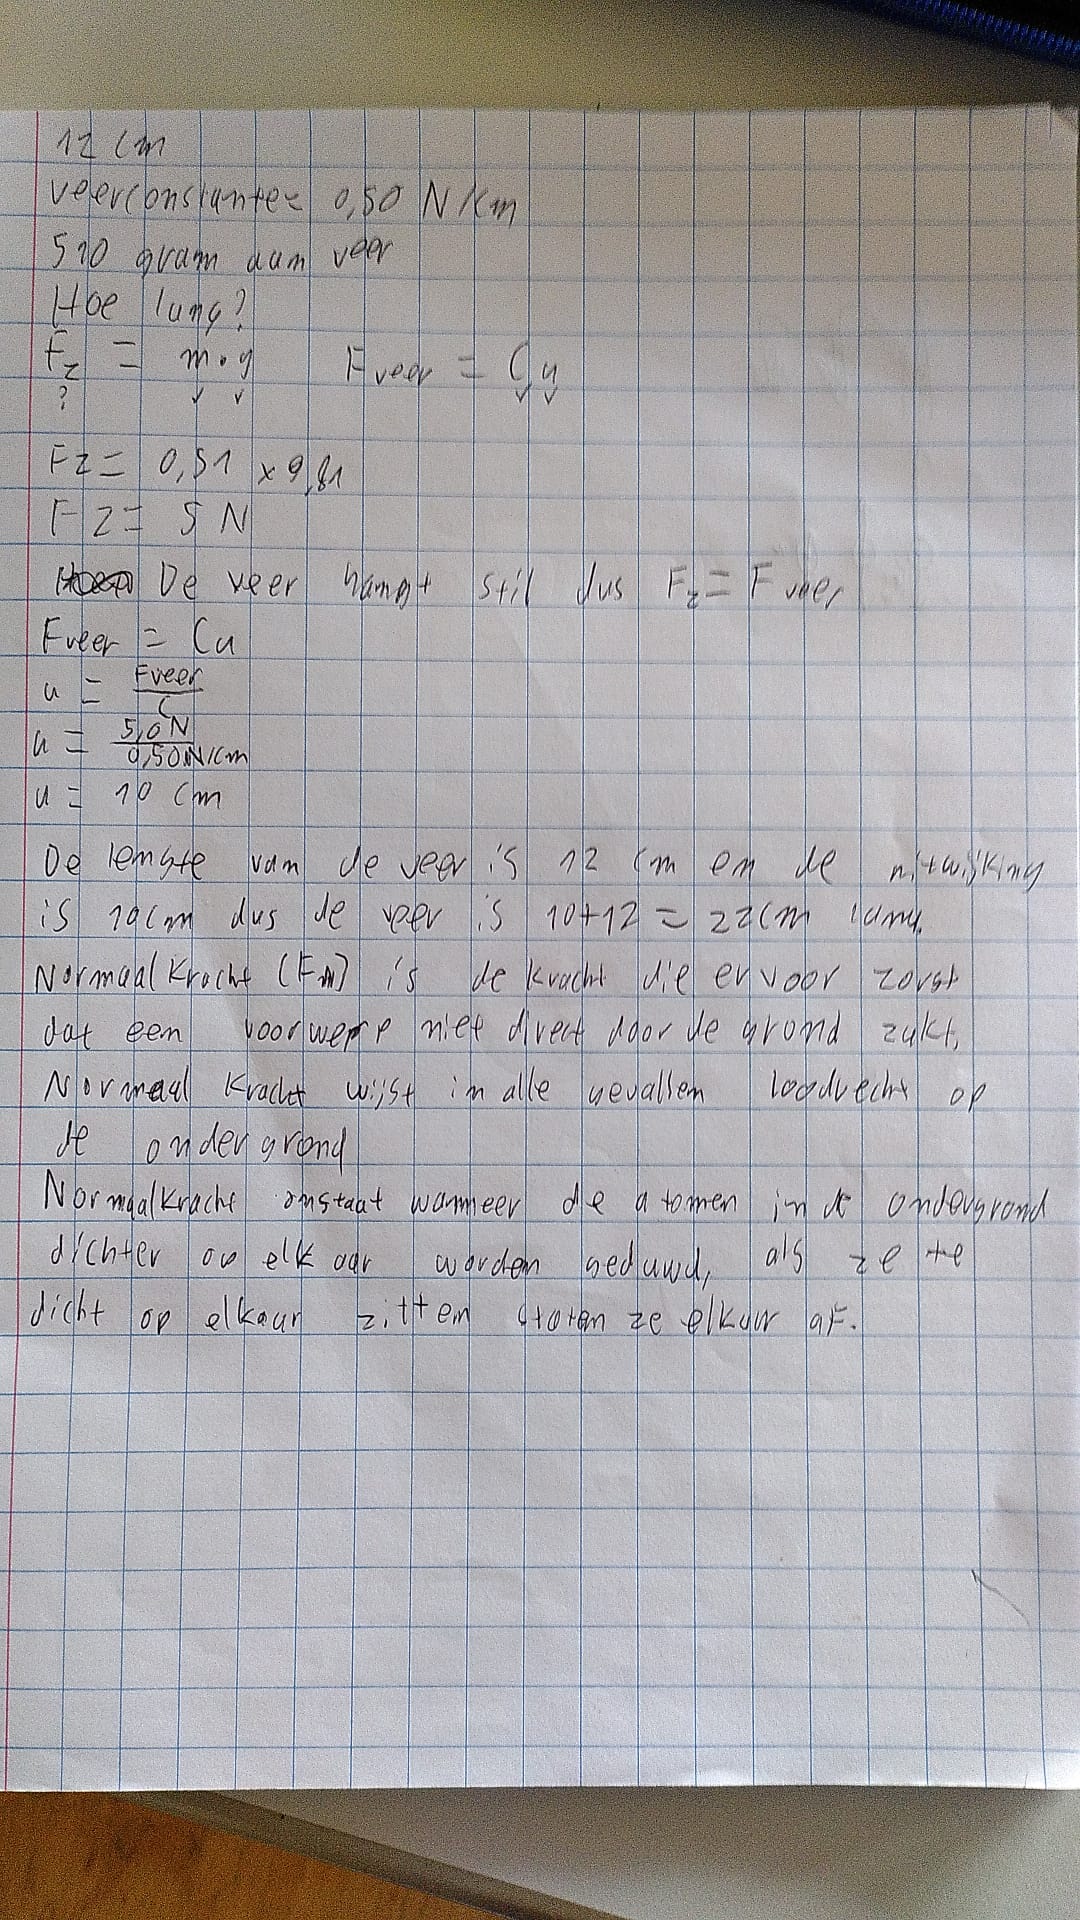 12 cm
veerconstante = 0,50 N/cm
510 gram aan veer
Hoe lang?
Fz = m·g Fveer = Cu
? ✓ ✓ ✓ ✓
Fz = 0,51 × 9,81
Fz = 5 N
De veer hangt stil dus Fz = Fveer
Fveer = Cu
u = Fveer / C
u = 5,0 N / 0,50 N/cm
u = 10 cm
De lengte van de veer is 12 cm en de uitwijking
is 10 cm dus de veer is 10+12 = 22 cm lang.
Normaalkracht (Fn) is de kracht die ervoor zorgt
dat een voorwerp niet direct door de grond zakt,
Normaal kracht wijst in alle gevallen loodrecht op
de ondergrond
Normaalkracht onstaat wanneer de atomen in de ondergrond
dichter op elkaar worden geduwd, als ze te
dicht op elkaar zitten stoten ze elkaar af.